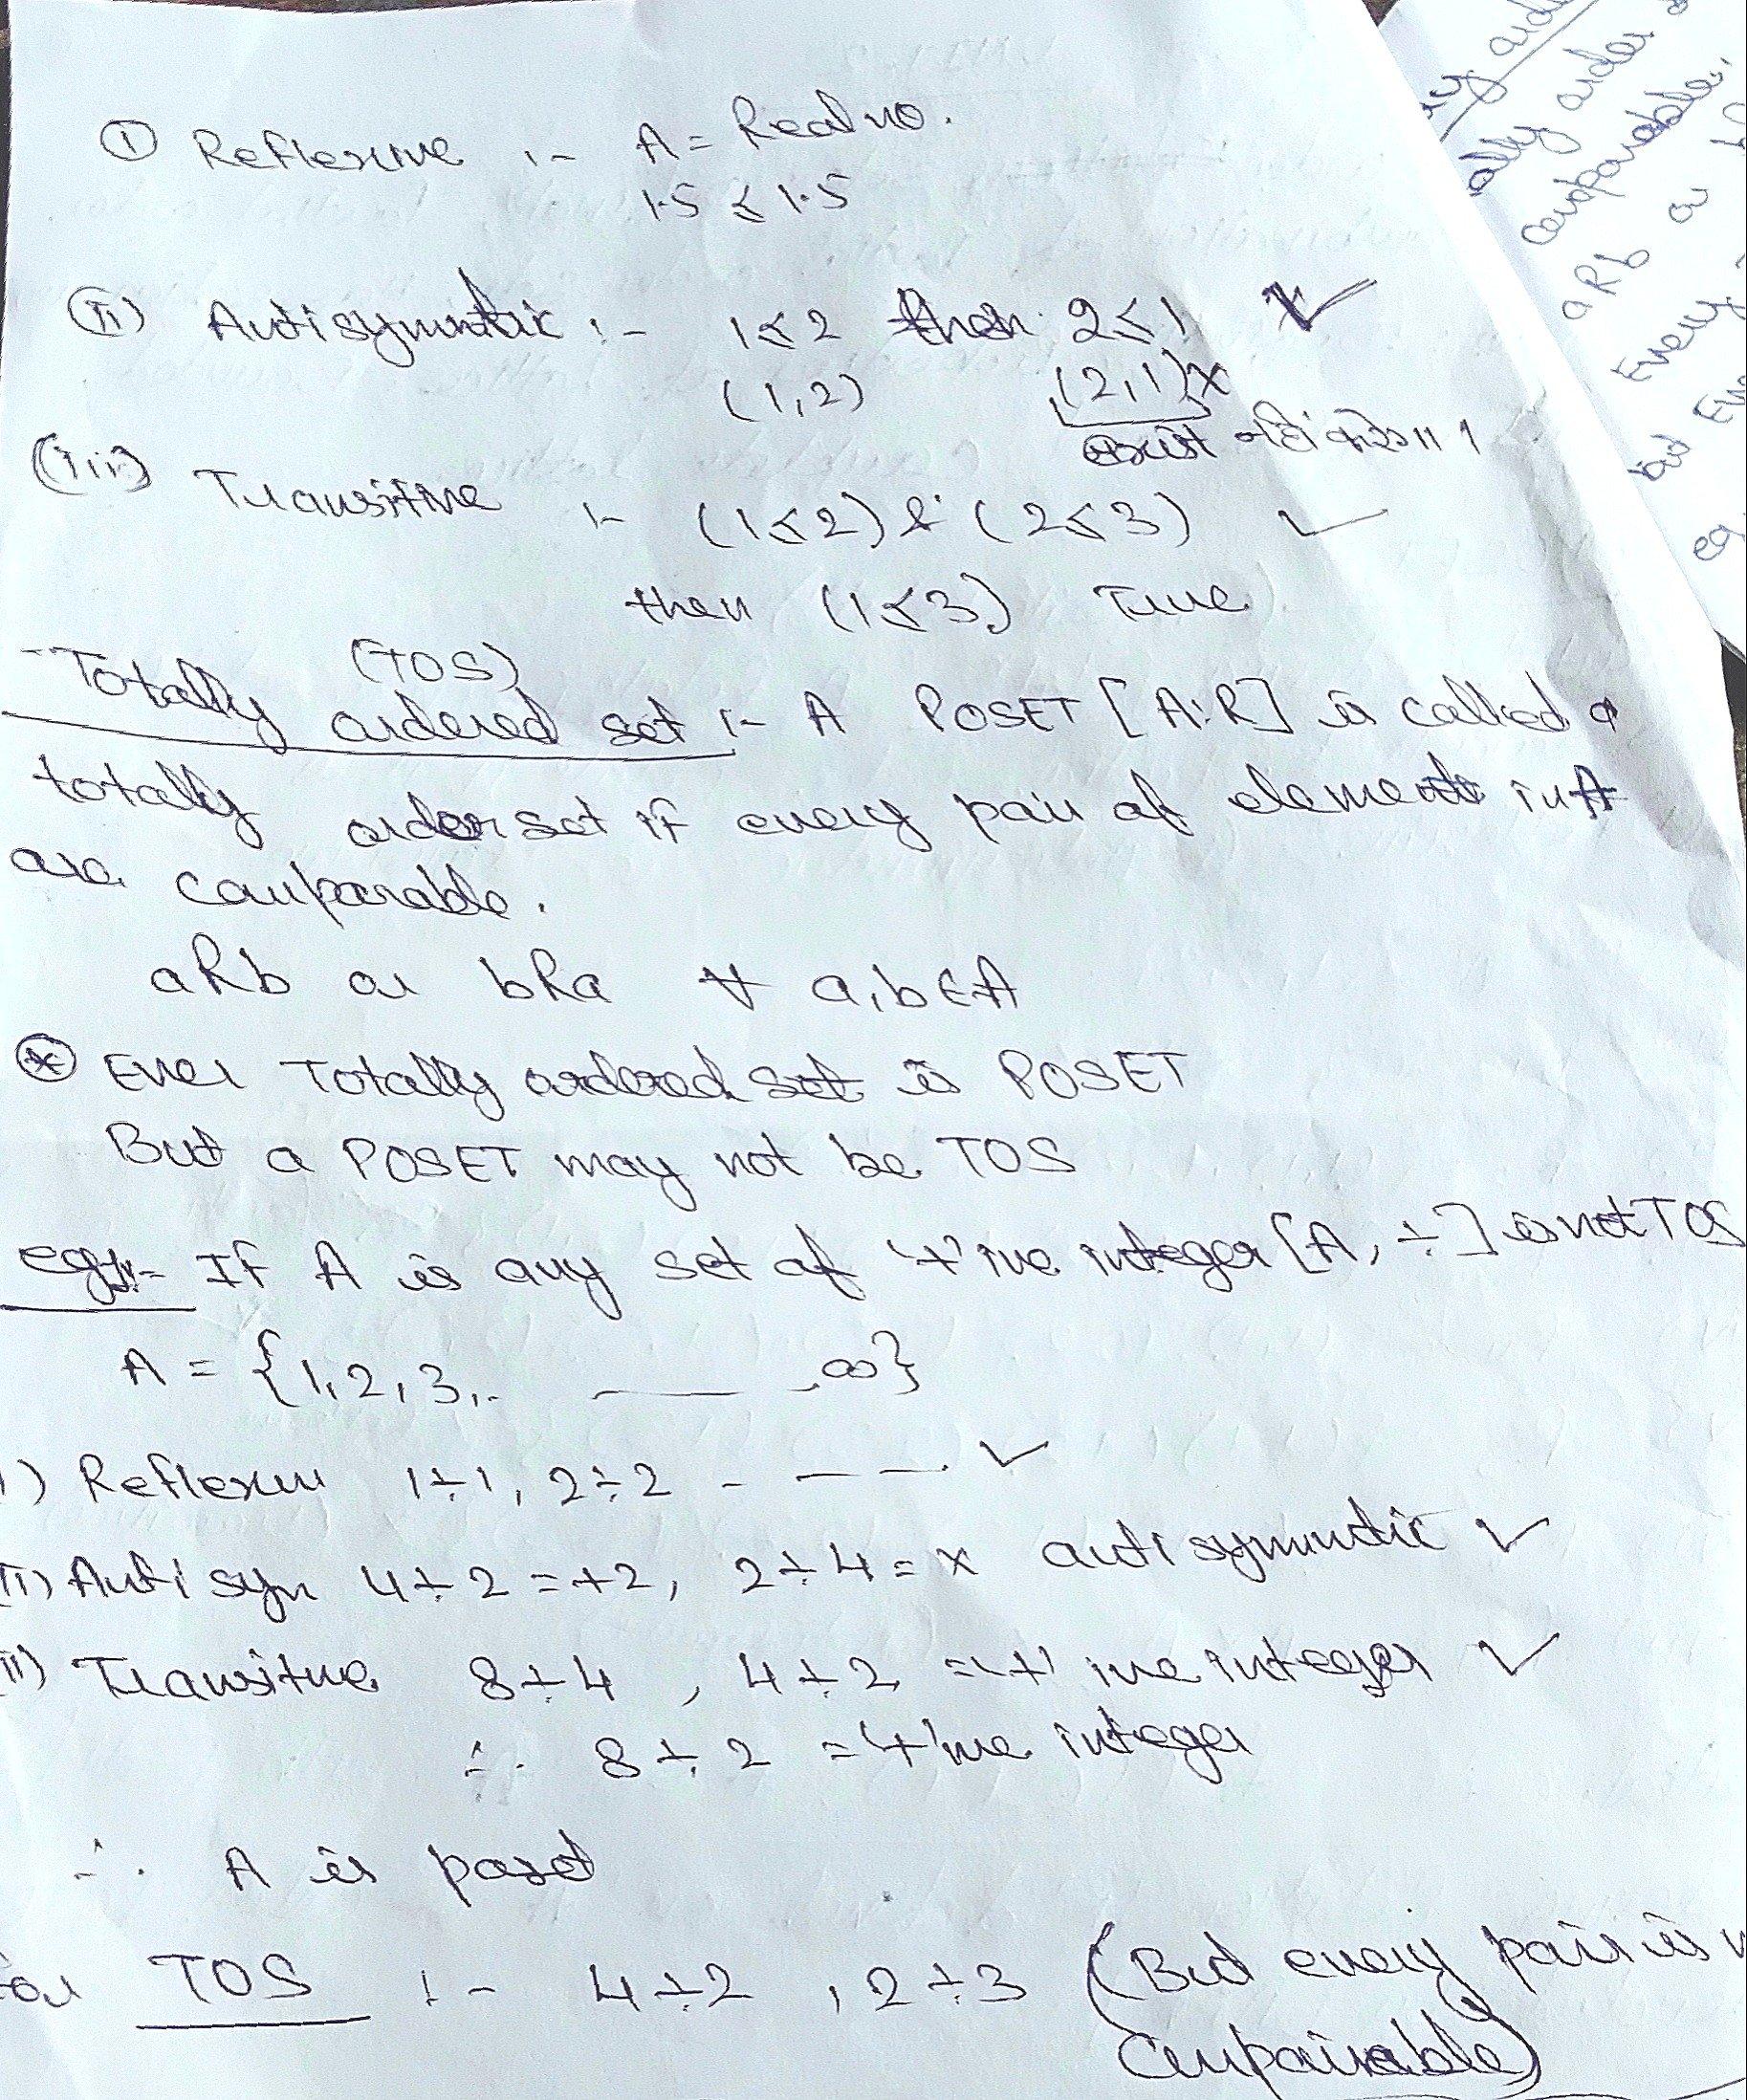 ① Reflexive :- A = Real no.
1.5 ≤ 1.5
(ii) Antisymmetric :- 1≤2 then 2≤1 ✓
(1,2) (2,1)×
exist
(iii) Transitive :- (1≤2) & (2≤3) ✓
then (1≤3) True
(TOS)
Totally ordered set :- A POSET [A:R] is called a
totally order set if every pair of elements in A
are comparable.
aRb or bRa ∀ a,b∈A
⊛ Ever Totally ordered set is POSET
But a POSET may not be TOS
eg:- If A is any set of '+'ive integer [A, ÷] is not TOS
A = {1,2,3,.. —— ,∞}
i) Reflexive 1÷1, 2÷2 - — —. ✓
ii) Anti sym 4÷2=+2, 2÷4=× antisymmetric ✓
ii) Transitive 8÷4 , 4÷2 ='+'ive integer ✓
∴ 8÷2 ='+'ive integer
∴ A is poset
For TOS :- 4÷2 , 2÷3 (But every pair is
Cupairable)
ally order
comparable.
aRb a
Every
eg